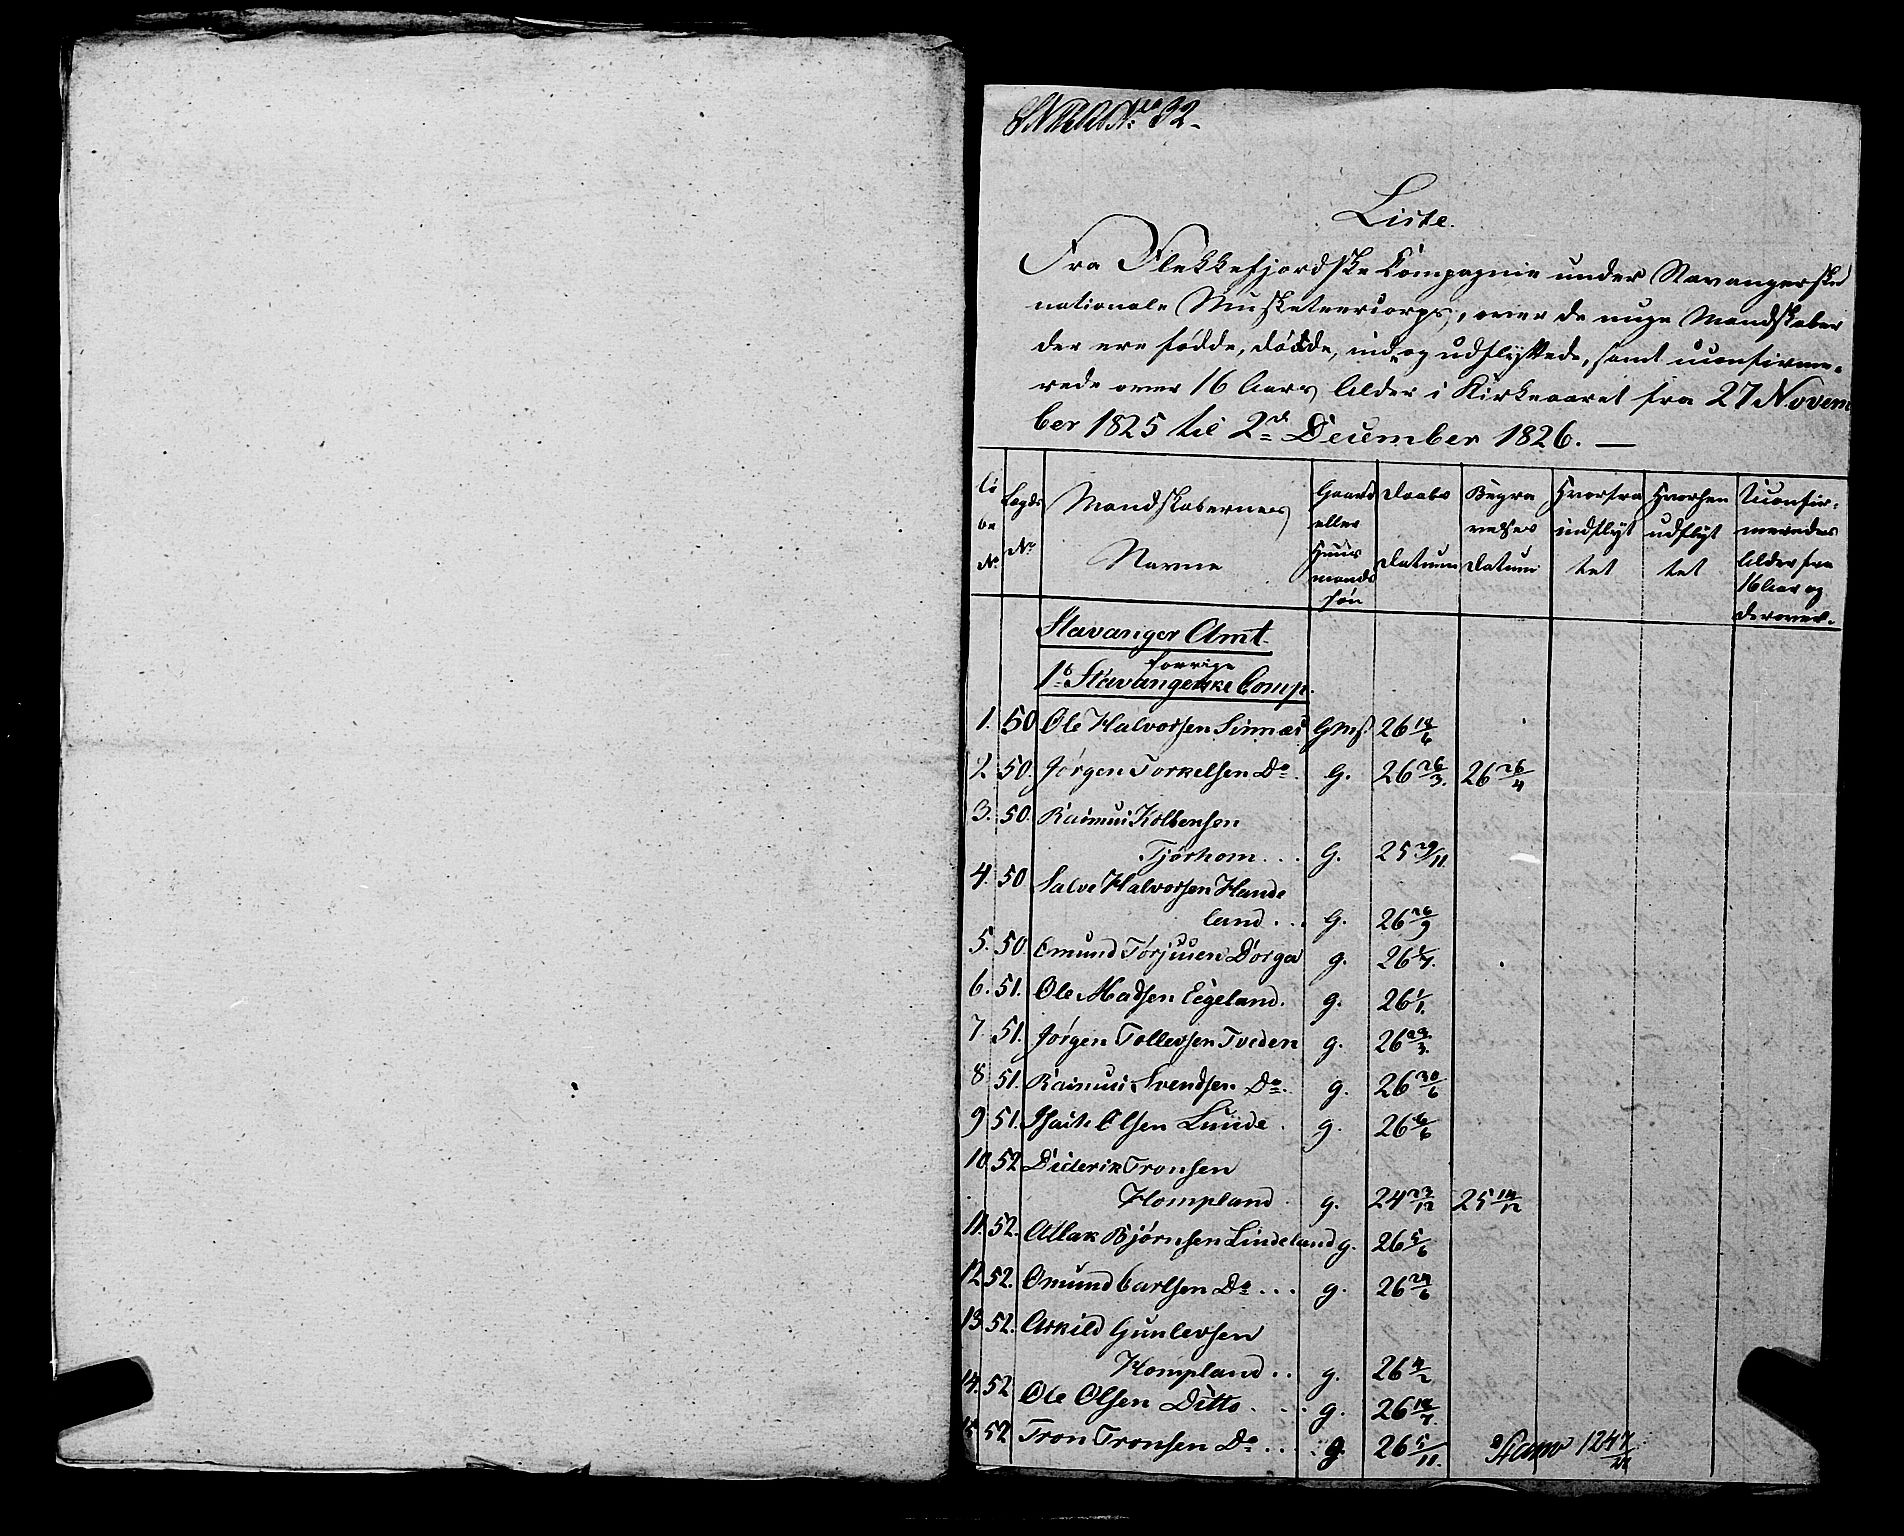 No 32.
Liste.
Fra Flekkefjordske Compagnie under Stavangerske
nationale Musketeercorps, over de unge Mandskaber
der ere fødde, dødde, ind og udflyttede, samt uconfirme-
rede over 16 Aars Alder i Kirkeaaret fra 27 Novem
ber 1825 til 2d December 1826. —
Lö be No | Lægds No | Mandskabernes Navne | Gaard eller Huus mands søn | Daabs Datum | Begra velses Datum | Hvorfra indflyt tet | Hvorhen udflyt tet | Uconfir- meredes Alder fra 16 Aar og derover.
Stavanger Amt.
forrige
1ste Stavangerske Comp.
1. 50 Ole Halvorsen Sinnæs Gms 26 18/6
2 50. Jørgen Torkelsen Do. G. 26 26/3. 26 26/4
3. 50. Rasmus Kolbensen
Tjørhom... G. 25 29/11.
4. 50 Salve Halvorsen Hande
land... G. 26 26/9
5. 50. Emund Torjusen Dorga g. 26 /7.
6. 51. Ole Madsen Eegeland. g. 26 1/1.
7. 51. Jørgen Tollevsen Tveden g. 26 29/3.
8 51. Rasmus Svendsen Do. g. 26 30/6
9 51. Olsen Lunde. g. 26 /6
10. 52 Diderik Tronsen
Hompland. g. 24 23/12 25 14/12
11. 52. Atlak Bjørnsen Lindeland g. 26 5/6
12 52. Omund Carlsen Do... g. 26 24/6
13 52. Askild Gunlevsen
Hompland.. g. 26 /2
14. 52 Ole Olsen Ditto... g. 26 /7.
15 52 Tron Tronsen Do.... g. 26 5/11.